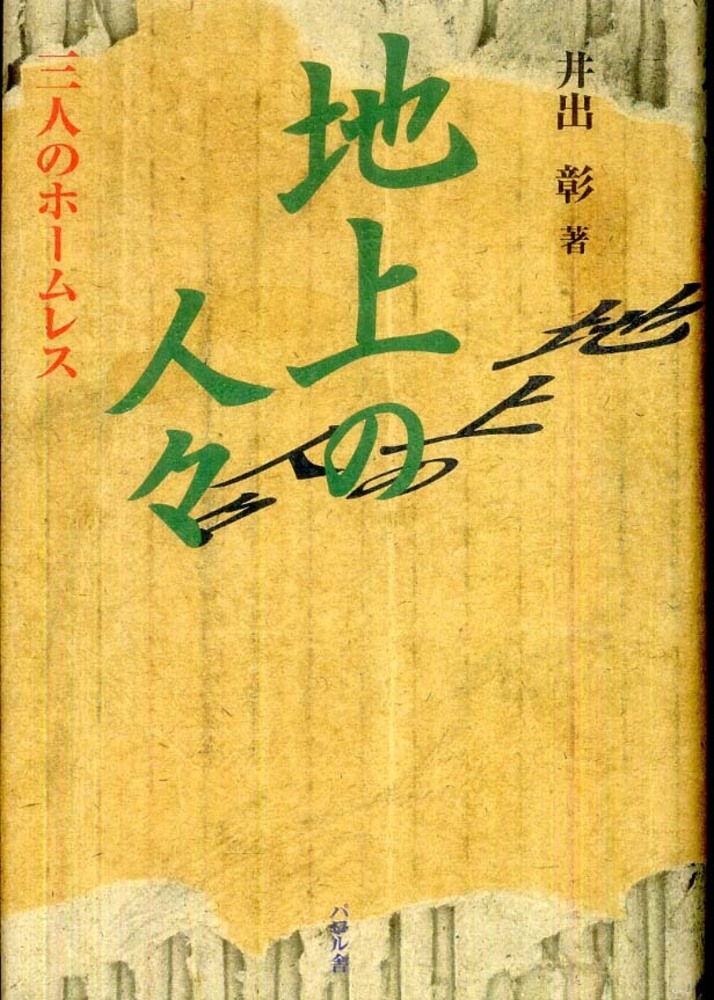 井出 彰 著
地上の
人々
地上の人々
三人のホームレス
パロル舎